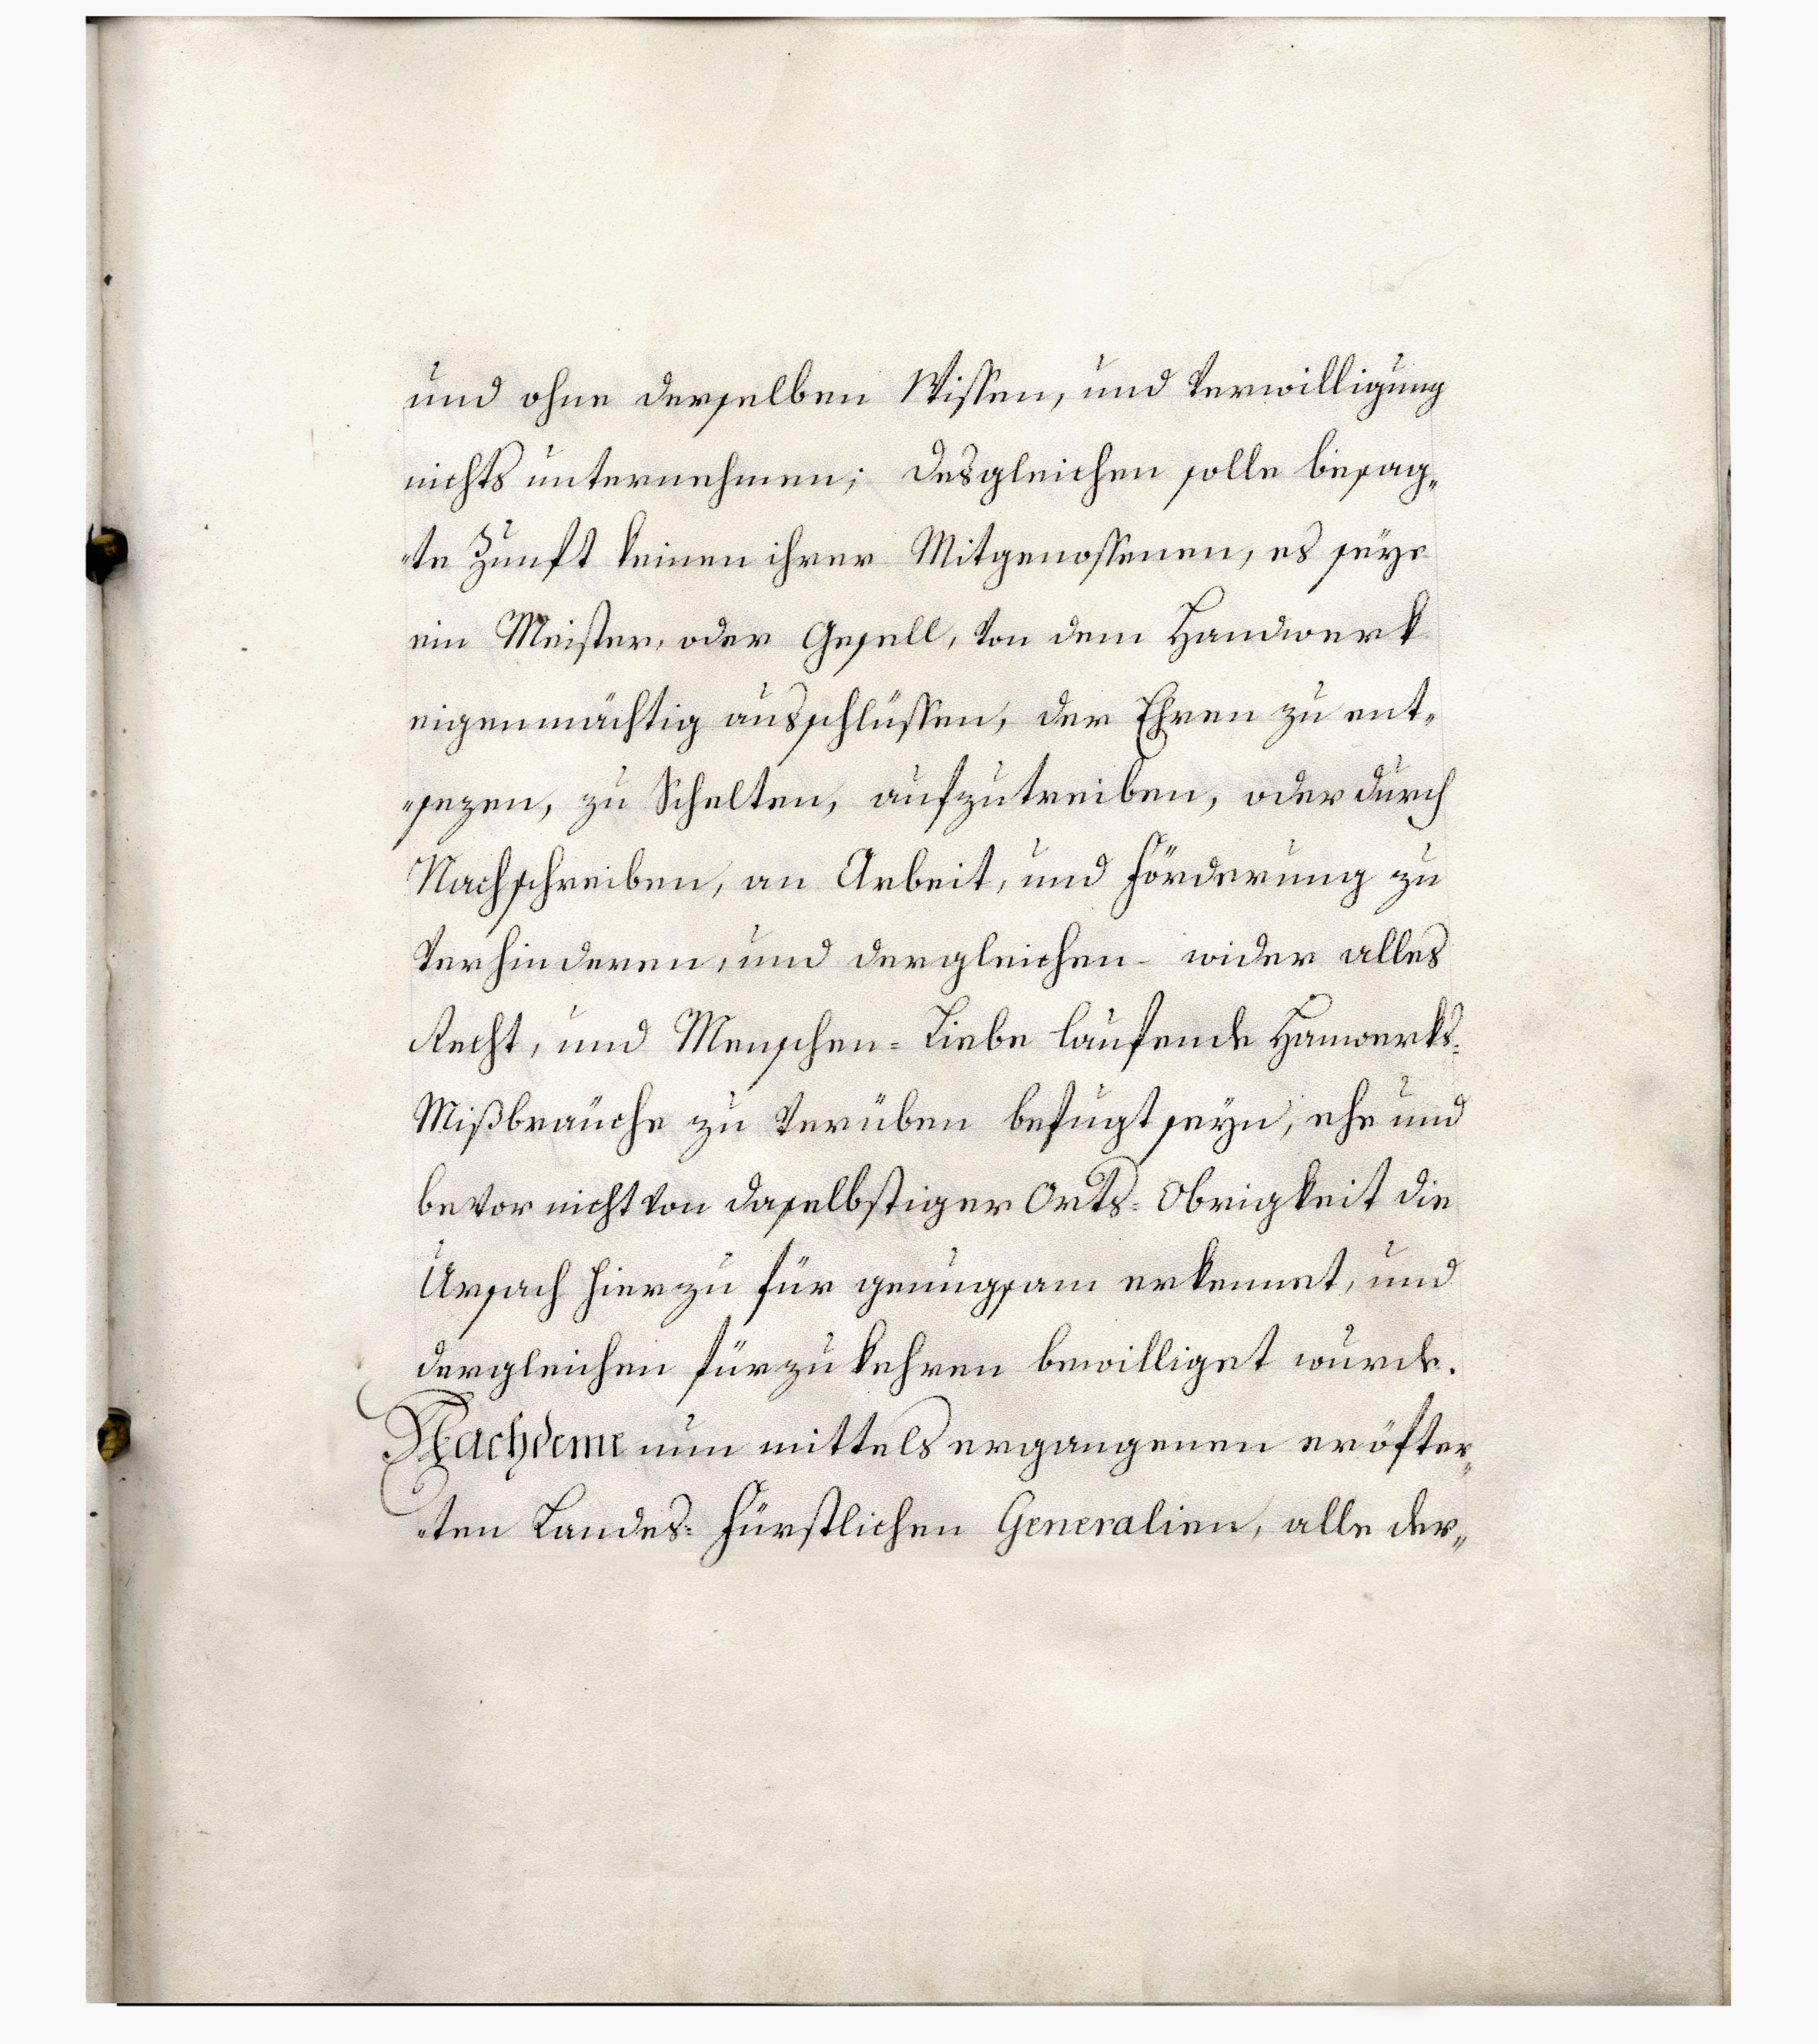 und ohne derselben Wissen, und Verwilligung
nichts unternehmen; desgleichen solle besag„
„te Zunft keinen ihrer Mitgenossenen, es seye
ein Meister, oder Gesell, von dem Handwerk
eigenmächtig ausschlüssen, der Ehren zu ent„
„sezen, zu Schelten, aufzutreiben, oder durch
Nachschreiben, an Arbeit, und Förderung zu
Verhinderen, und dergleichen- wider alles
Recht, und Menschen= Liebe laufende Hanwerks=
Mißbräuche zu Verüben befugt seyn, ehe und
bevor nicht von daselbstiger Orts= Obrigkeit die
Ursach hierzu für genugsam erkennet, und
dergleichen fürzukehren bewilliget wurde.
Nachdeme nun mittels ergangenen eröfter„
„ten Landes= Fürstlichen Generalien, alle der„